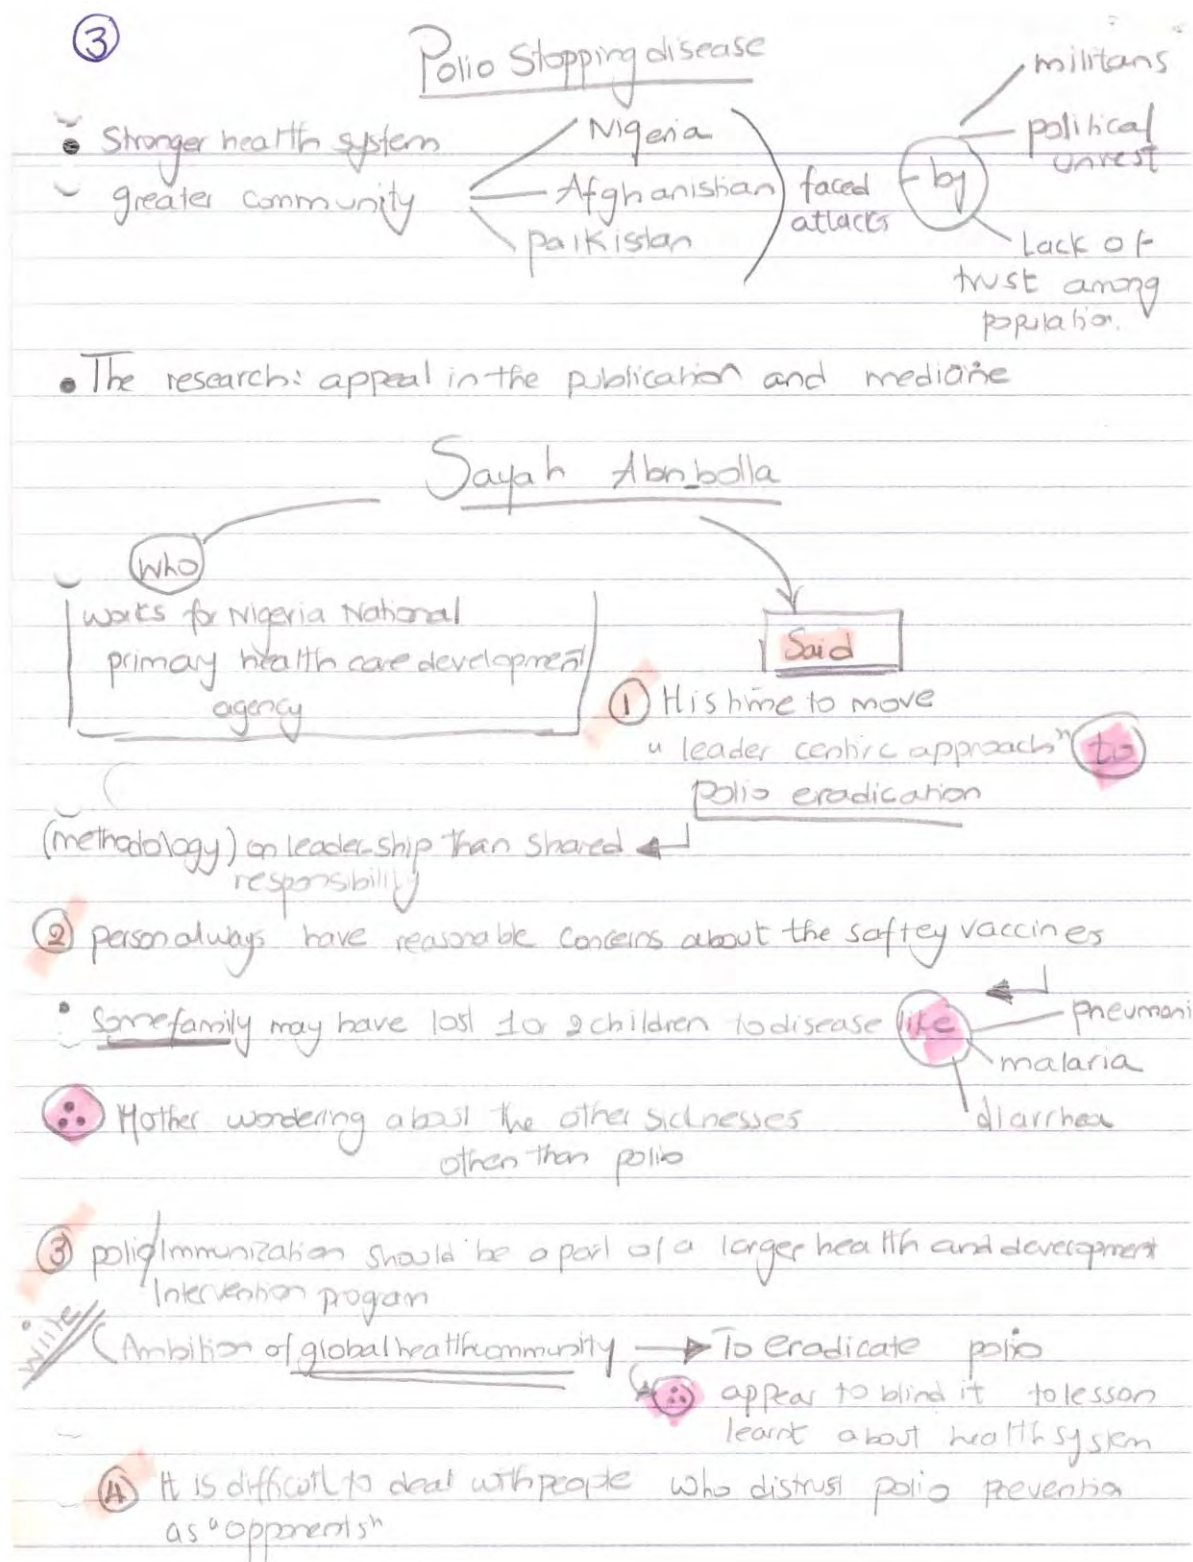 3
Polio Stopping disease
militans
• Stronger health system
Nigeria
political
unrest
greater community
Afghanistian
faced
attacks
by
paikisstan
Lack of
trust among
population.
• The research: appeal in the publication and medicine
Sayah Abnbolla
Who
works for Nigeria National
primary health care development
agency
Said
① His hime to move
"leader centric approach" to
Polio eradication
(methodology) on leadership than shared
responsibility
② person always have reasonable concerns about the saftey vaccines
• Some family may have lost 1 or 2 children to disease like
pneumoni
malaria
Mother wondering about the other sicknesses
diarrhea
other than polio
③ polio/Immunization should be a part of a larger health and development
Intervention program
write
(Ambition of global health community → To eradicate polio
appear to blind it to lesson
learnt about health system
④ It is difficult to deal with people who distrust polio prevention
as "opponents"